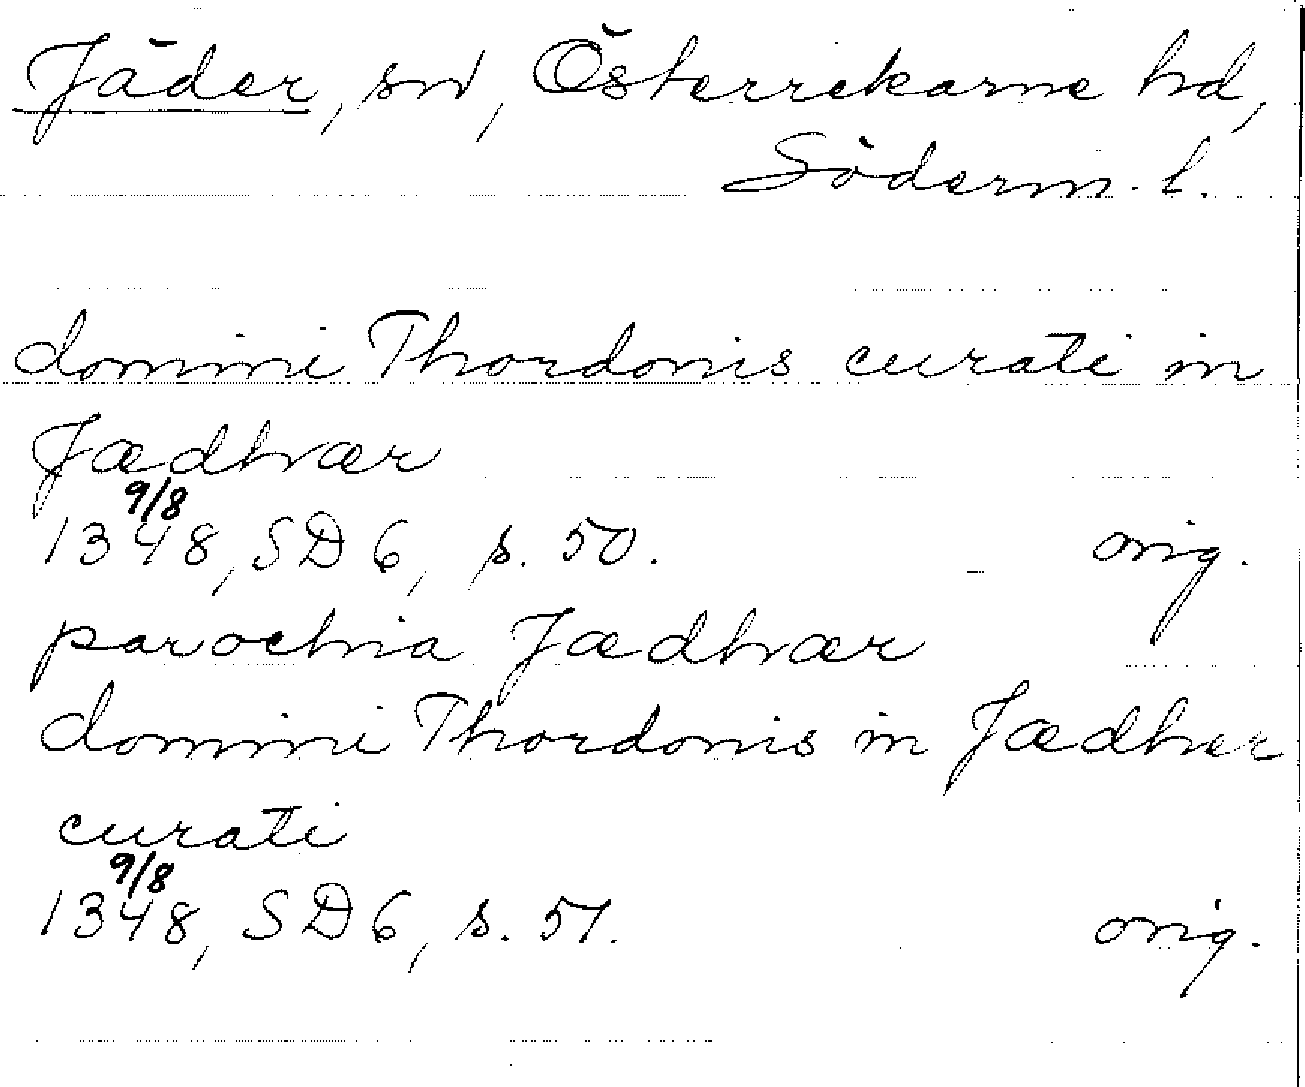 Jäder, sn, Österrekarne hd,
Söderm. l.
domini Thordonis curati in
Jædhær
9/8
1348, SD 6, s. 50. orig.
parochia Jædhær
domini Thordonis in Jædher
curati
9/8
1348, SD 6, s. 51. orig.